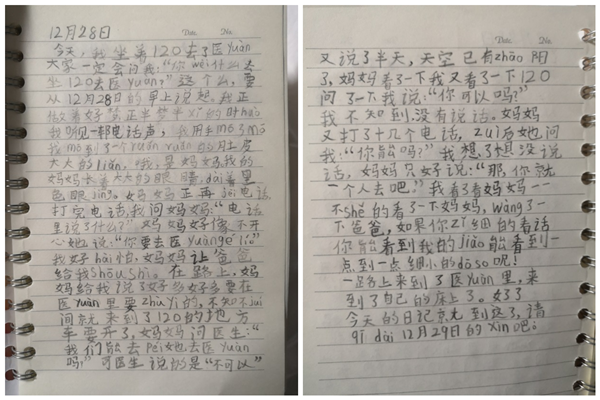 12月28日
今天，我坐第120去了医yuàn
大家一定会问我："你wèi什么
坐120去医yuàn，"这个么，要
从12月28日的早上说起。我正
做着好梦正半梦半xǐng的时hòu
我听见一声电话声，我用手mō了mō
我mō到了一个yuán yuán的肚皮
大大的liǎn。哦，是妈妈，我的
妈妈长着大大的眼睛，dài着黑
色眼jìng。妈妈正再jiē电话，
打完电话，我问妈妈："电话
里说了什么？"妈妈好像不开
心她说："你要去医yuàngé lí"
我好hài怕，妈妈让爸爸
给我shōu shi。在路上，妈
妈给我说了好多好多要在
医yuàn里要zhù yì的，不知不jué
间就来到了120的地方
车要开了，妈妈问医生："
我们能去péi她去医yuàn
吗，"可医生说的是"不可以"
Date. No.
又说了半天，天空已有zhāo阳
了，妈妈看了一下我又看了一下120
问了一下我说："你可以吗？"
我不知到，没有说话。妈妈
又打了十几个电话，zuì后她问
我："你能吗？"我想了想没说
话。妈妈只好说："那，你就
一个人去吧。"我看了看妈妈一
不shě的看了一下妈妈，wàng了一
下爸爸，如果你zǐ细的看话
你能看到我的jiǎo能看到一
点到一点细小的dō so呢！
一路上来到了医yuàn里，来
到了自己的床上了。好了
今天的日记就到这了，请
qī dài 12月29日的xìn吧。